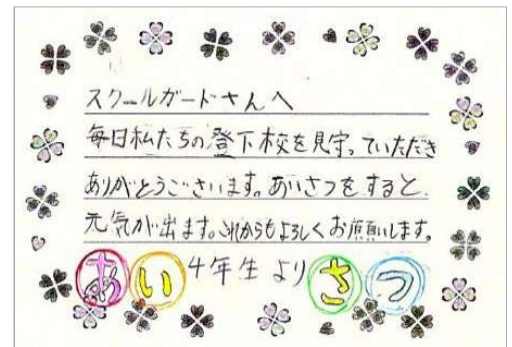 スクールガードさんへ
毎日私たちの登下校を見守っていただき
ありがとうございます。あいさつをすると、
元気が出ます。これからもよろしくお願いします。
あい 4年生より さつ